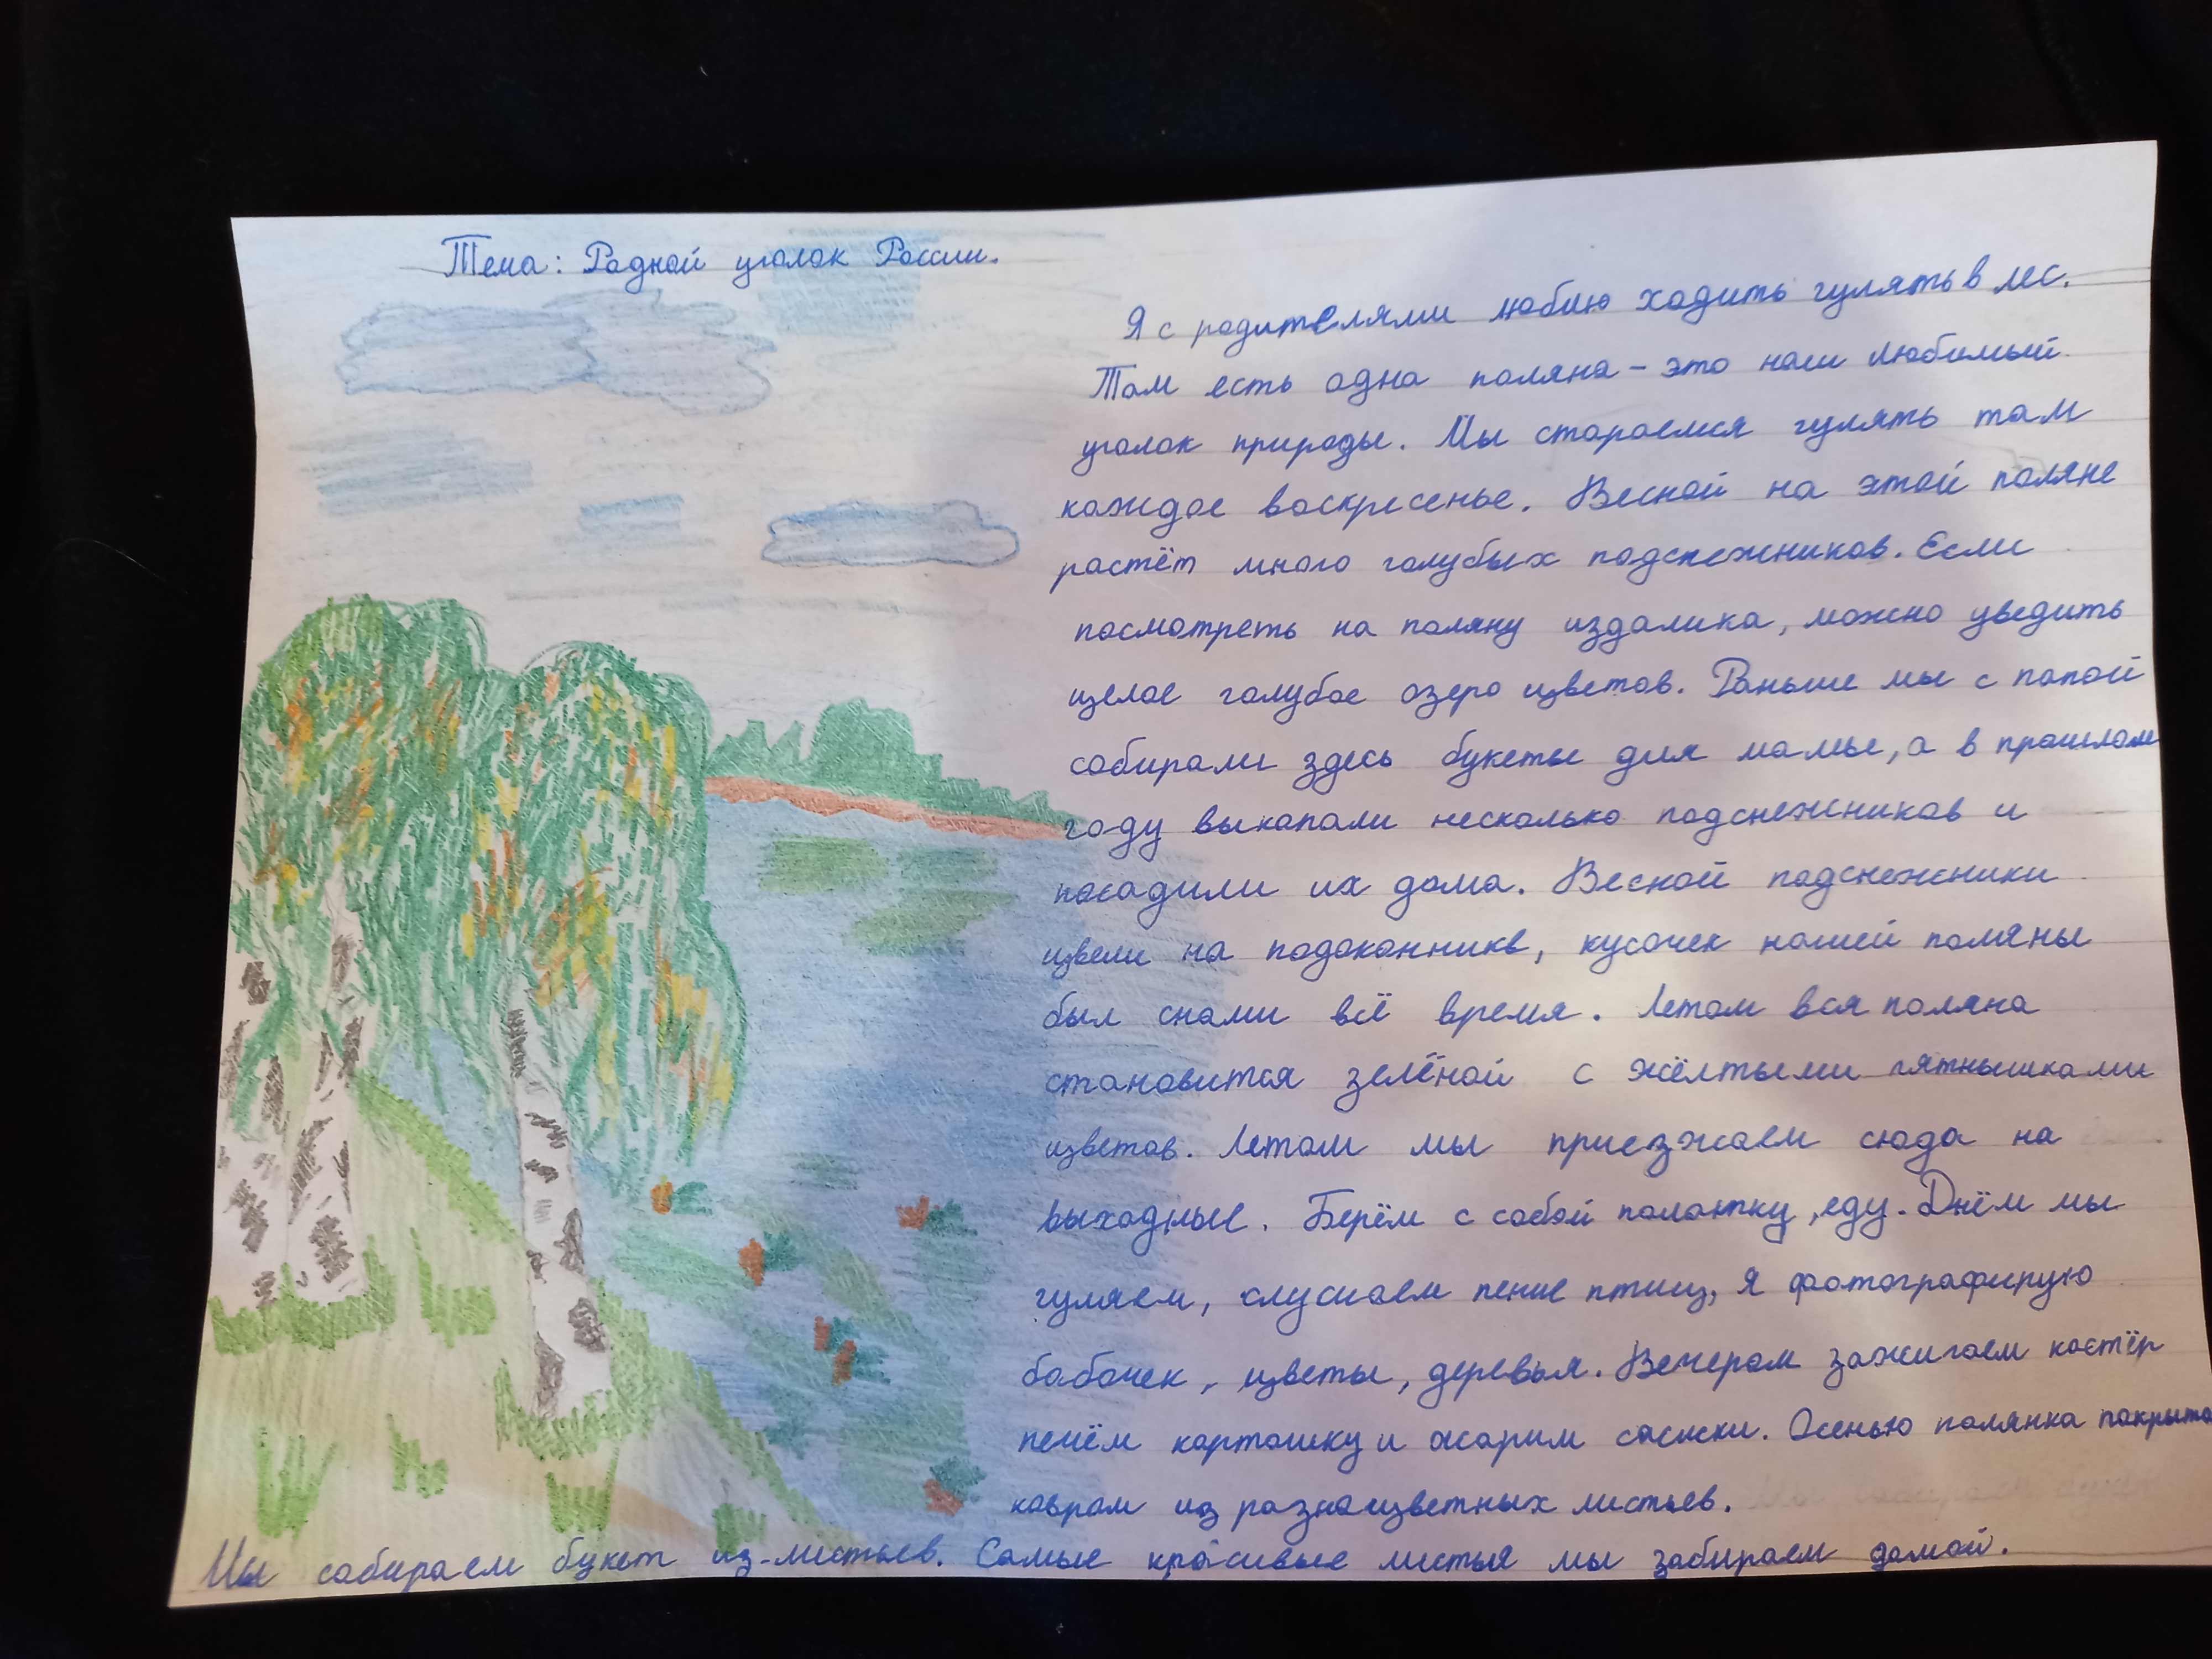 Тема: Родной уголок России.
Я с родителями люблю ходить гулять в лес.
Там есть одна поляна – это наш любимый
уголок природы. Мы стараемся гулять там
каждое воскресенье. Весной на этой поляне
растёт много голубых подснежников. Если
посмотреть на поляну издалика, можно уведить
целое голубое озеро цветов. Раньше мы с папой
собирали здесь букеты для мамы, а в прошлом
году выкопали несколько подснежников и
посадили их дома. Весной подснежники
цвели на подоконникв, кусочек нашей поляны
был снами всё время. Летом вся поляна
становится зелёной с жёлтыми пятнышками
цветов. Летом мы приезжаем сюда на
выходные. Берём с собой палатку, еду. Днём мы
гуляем, слушаем пение птиц, я фотографирую
бабочек, цветы, деревья. Вечером зажигаем костёр
печём картошку и жарим сосиски. Осенью полянка покрыта
ковром из разноцветных листьев.
Мы собираем букет из-листьев. Самые красивые листья мы забираем домой.